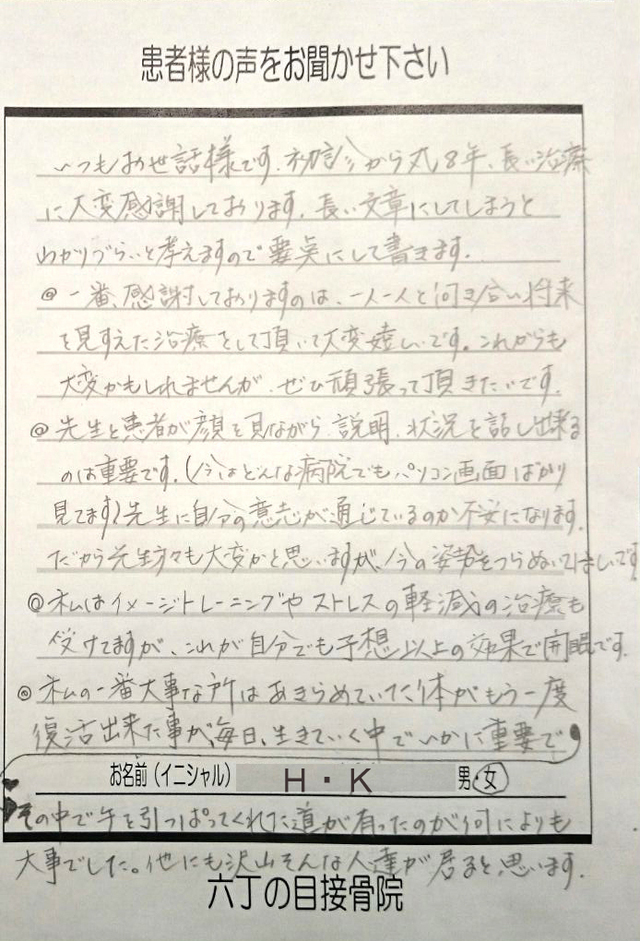 患者様の声をお聞かせ下さい
いつもおせ話様です。初診から丸8年、長い治療
に大変感謝しております。長い文章にしてしまうと
わかりづらいと考えますので要点にして書きます。
◎一番、感謝しておりますのは、一人一人と向き合い将来
を見すえた治療をして頂いて大変嬉しいです。これからも
大変かもしれませんが、ぜひ頑張って頂きたいです。
◎先生と患者が顔を見ながら説明、状況を話し出来る
のは重要です。(今はどんな病院でもパソコン画面ばかり
見てます)先生に自分の意志が通じているのか不安になります。
だから先生方々も大変かと思いますが、今の姿勢をつらぬいてほしいです
◎私はイメージトレーニングやストレスの軽減の治療も
受けてますが、これが自分でも予想以上の効果で開眼です。
◎私の一番大事な所はあきらめていた体がもう一度
復活出来た事が、毎日、生きていく中でいかに重要で
お名前(イニシャル) H・K 男・女
その中で手を引っぱってくれた道が有ったのが何によりも
大事でした。他にも沢山そんな人達が居ると思います。
六丁の目接骨院